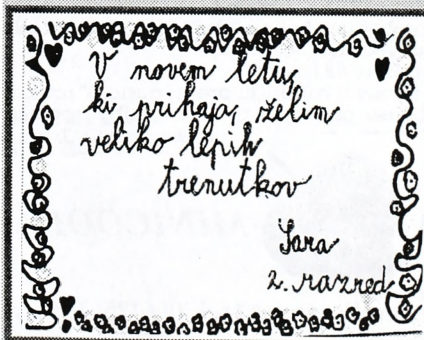 V novem letu,
ki prihaja, želim
veliko lepih
trenutkov
Sara
2. razred